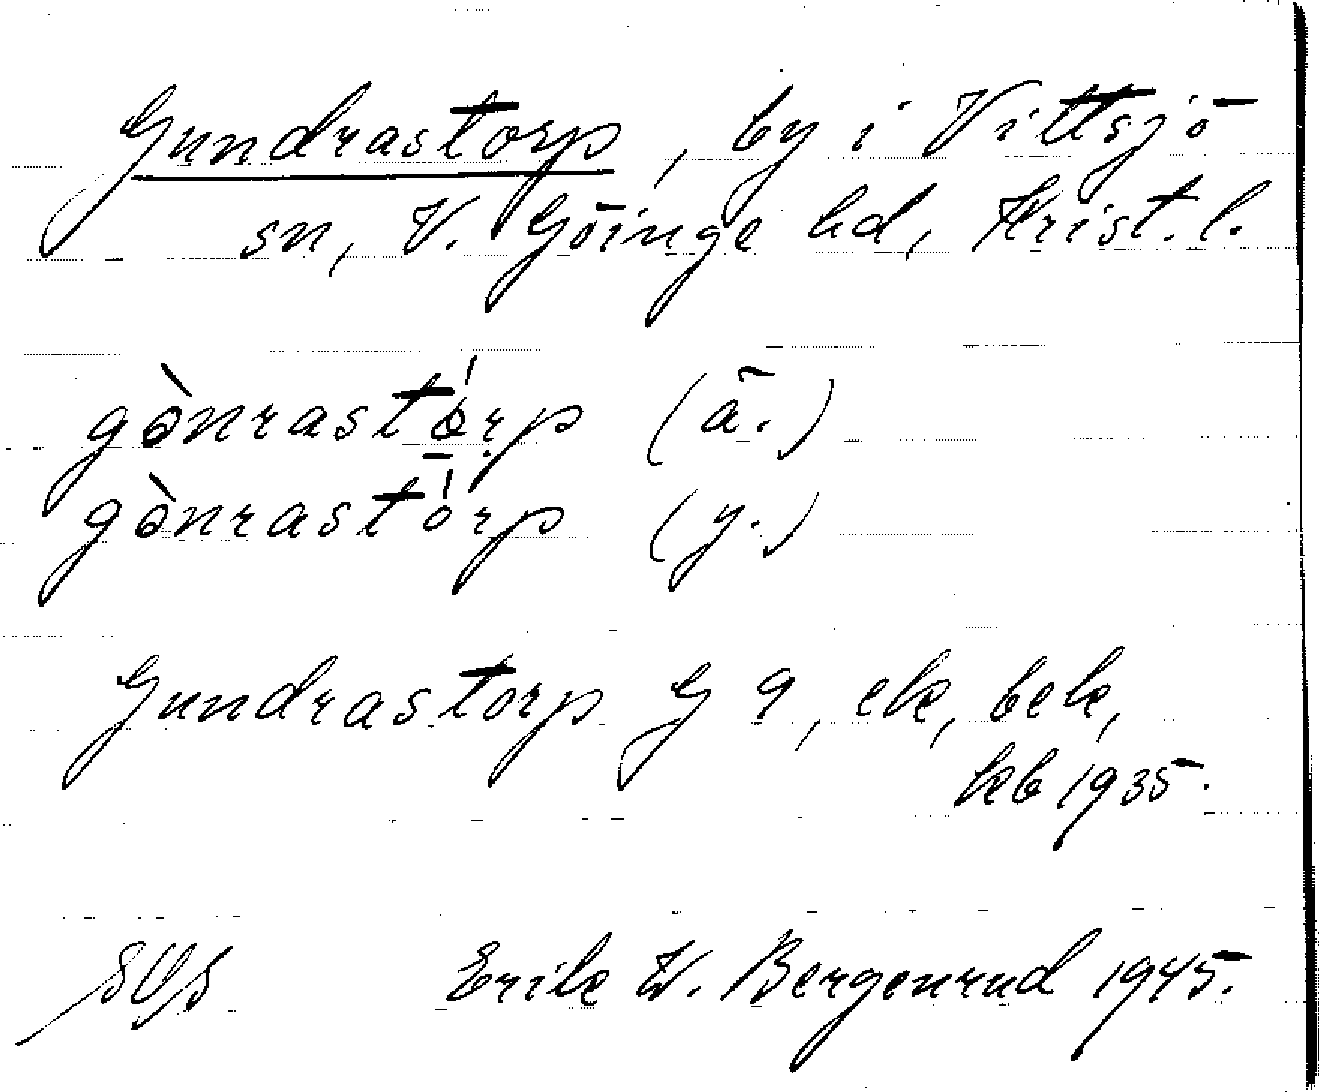 Gundrastorp, by i Vittsjö
sn, V. Göinge hd, Krist. l.
gònrastó̱rp (ä.)
gònrastórp (y.)
Gundrastorp G 9, ek, bek,
kb 1935.
Erik W. Bergenrud 1945.